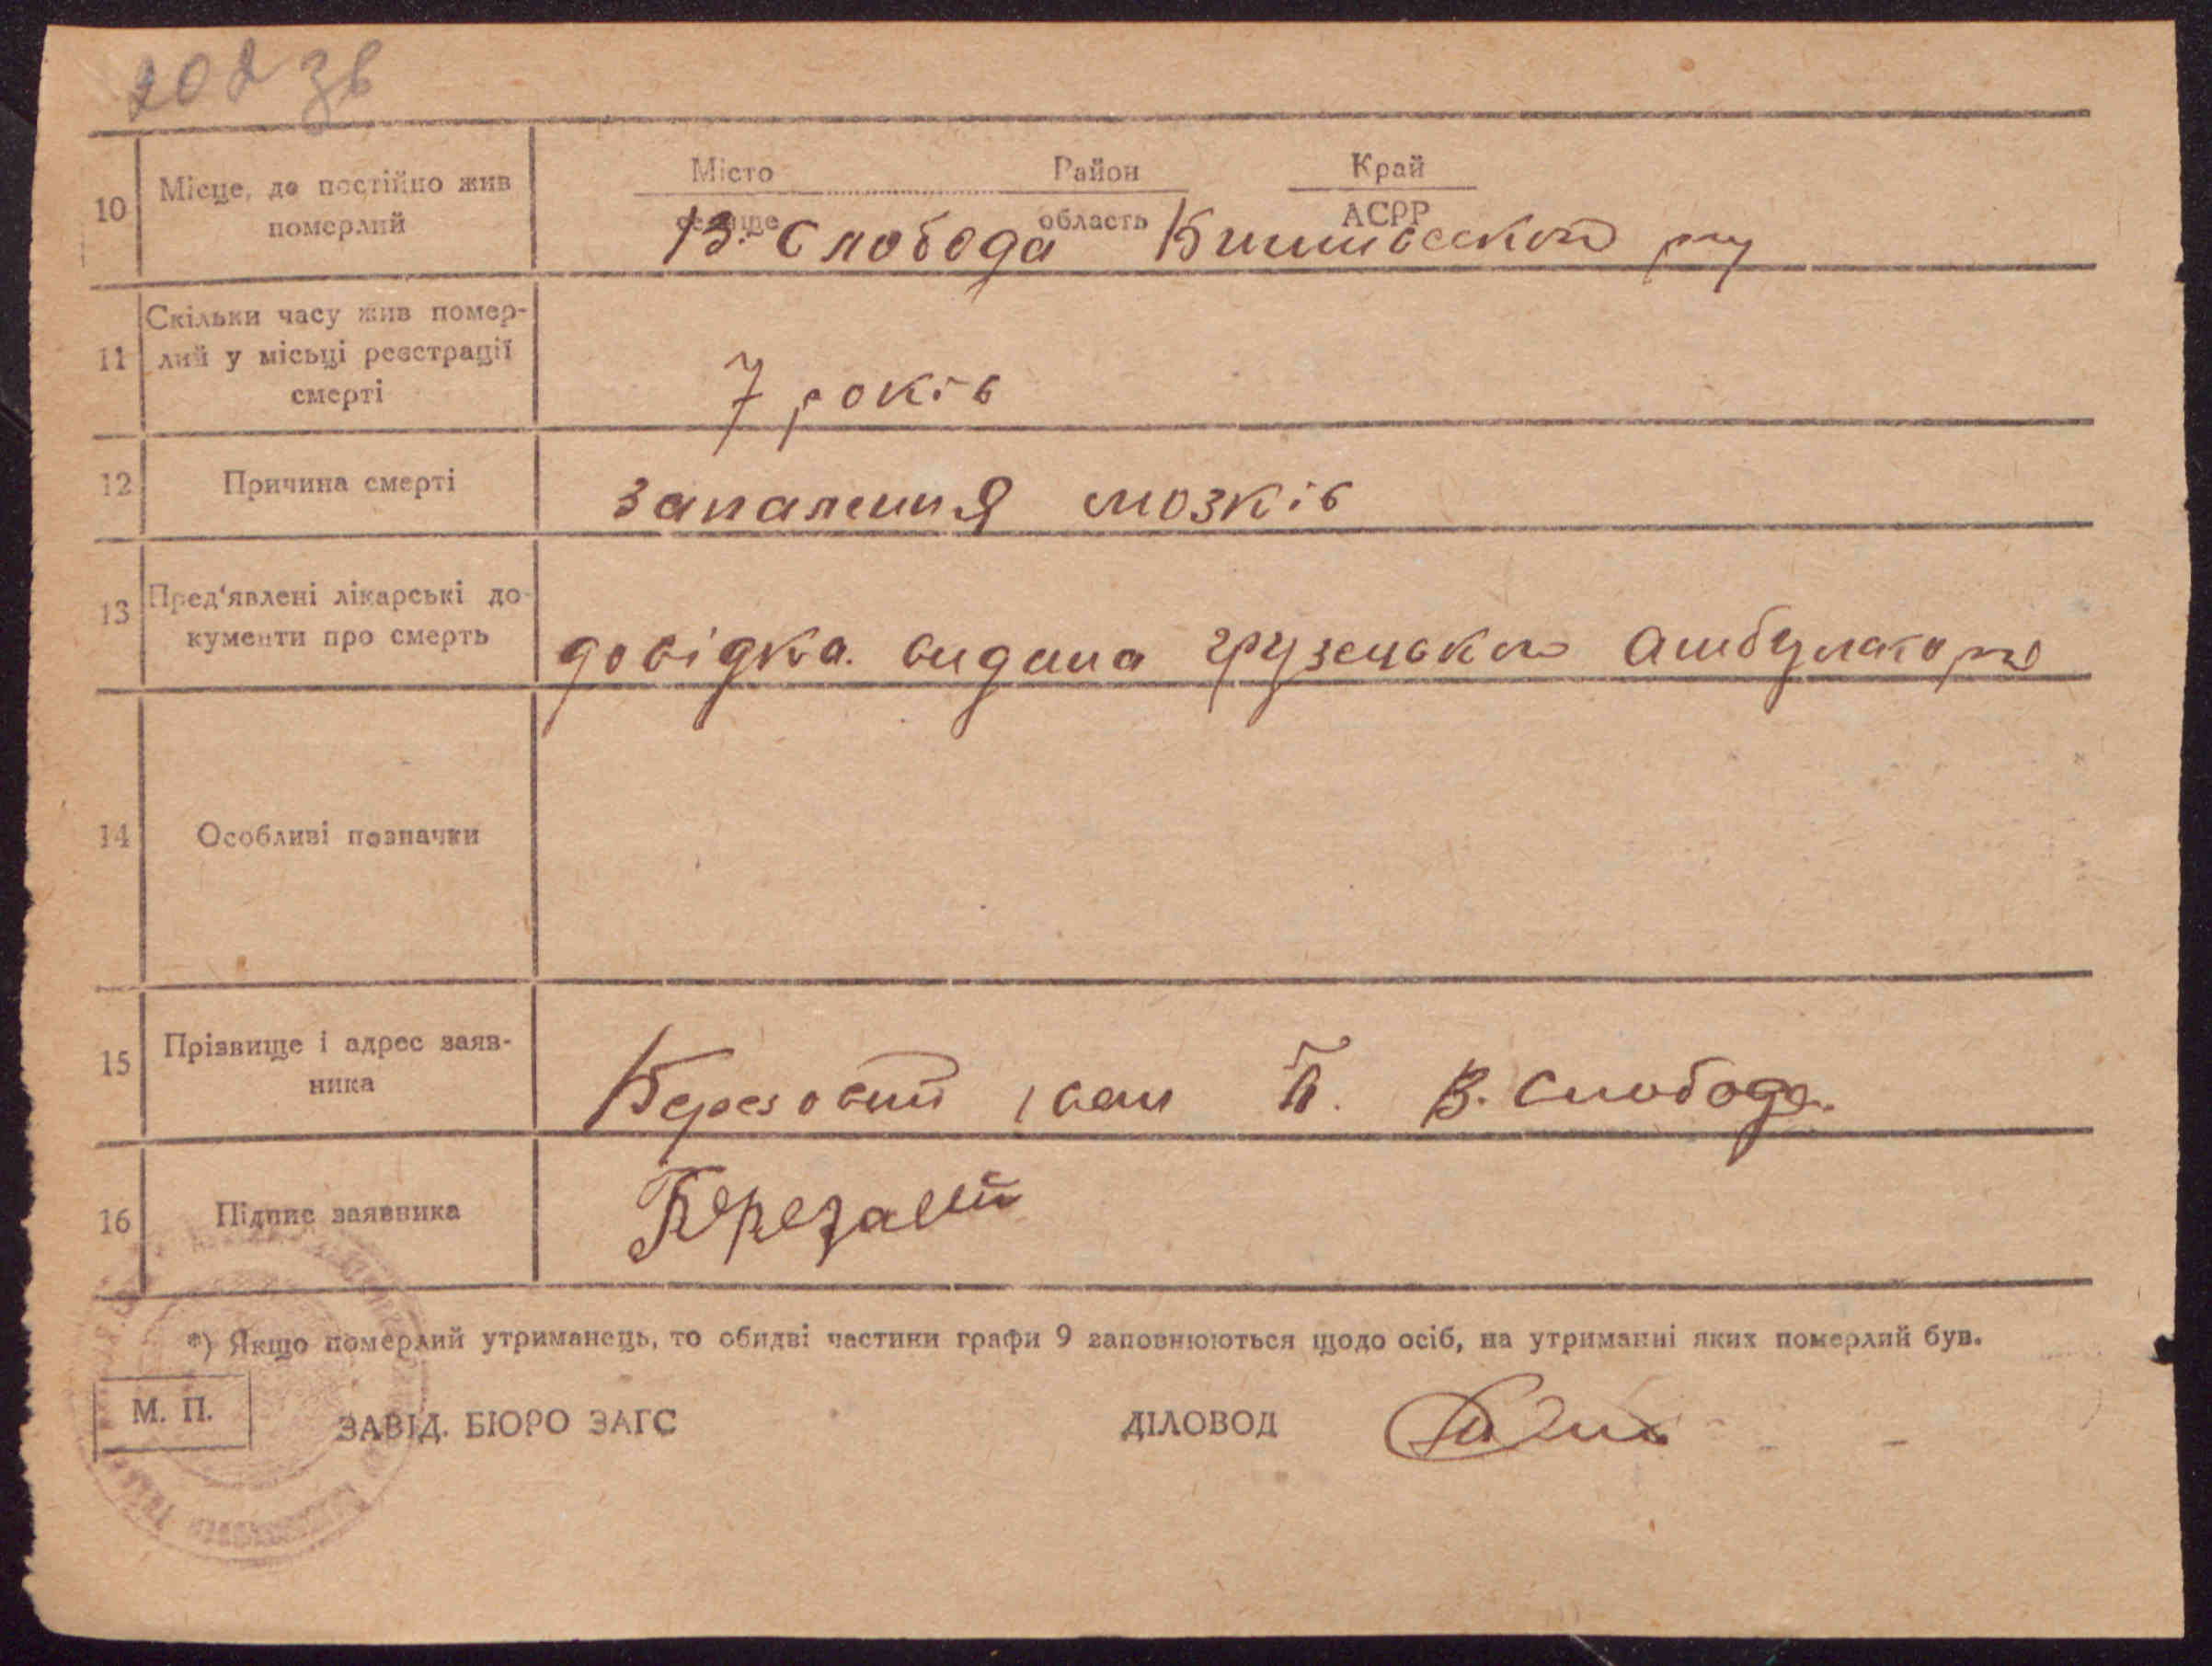 202 зв
10 Місце, де постійно жив
померлий
Місто Район Край
селище область АСРР
В. Слобода
11 Скільки часу жив помер-
лий у місьці реєстрації
смерті
7 років
12 Причина смерті
запалення мозків
13 Пред'явлені лікарські до-
кументи про смерть
довідка видана грузецькою амбулаторію
14 Особливі позначки
15 Прізвище і адрес заяв-
ника
Березовий В. Слобода
16 Підпис заявника
*) Якщо померлий утриманець, то обидві частини графи 9 заповнюються щодо осіб, на утриманні яких померлий був.
М. П.
ЗАВІД. БЮРО ЗАГС ДІЛОВОД